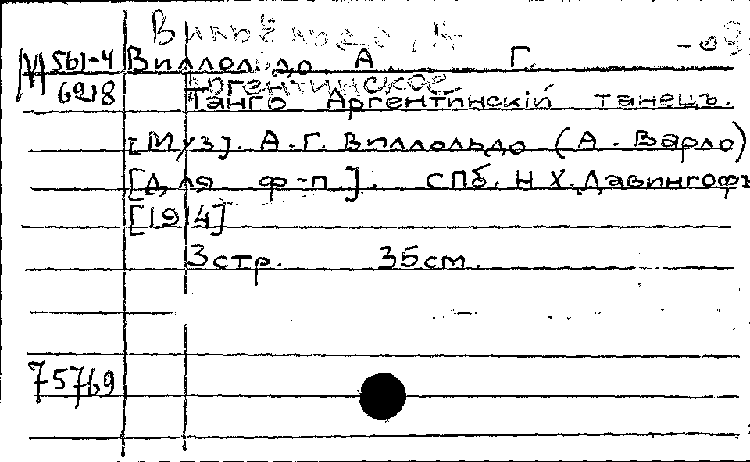 М 561-4 Виллольдо А. Г.
6218 Аргентинское
Танго Аргентинскiй танецъ.
[Муз]. А.Г. Виллольдо (А. Варло)
[Для ф-п]. СПб. Н.Х. Давингофъ
[1914]
3 стр. 35 см.
75769